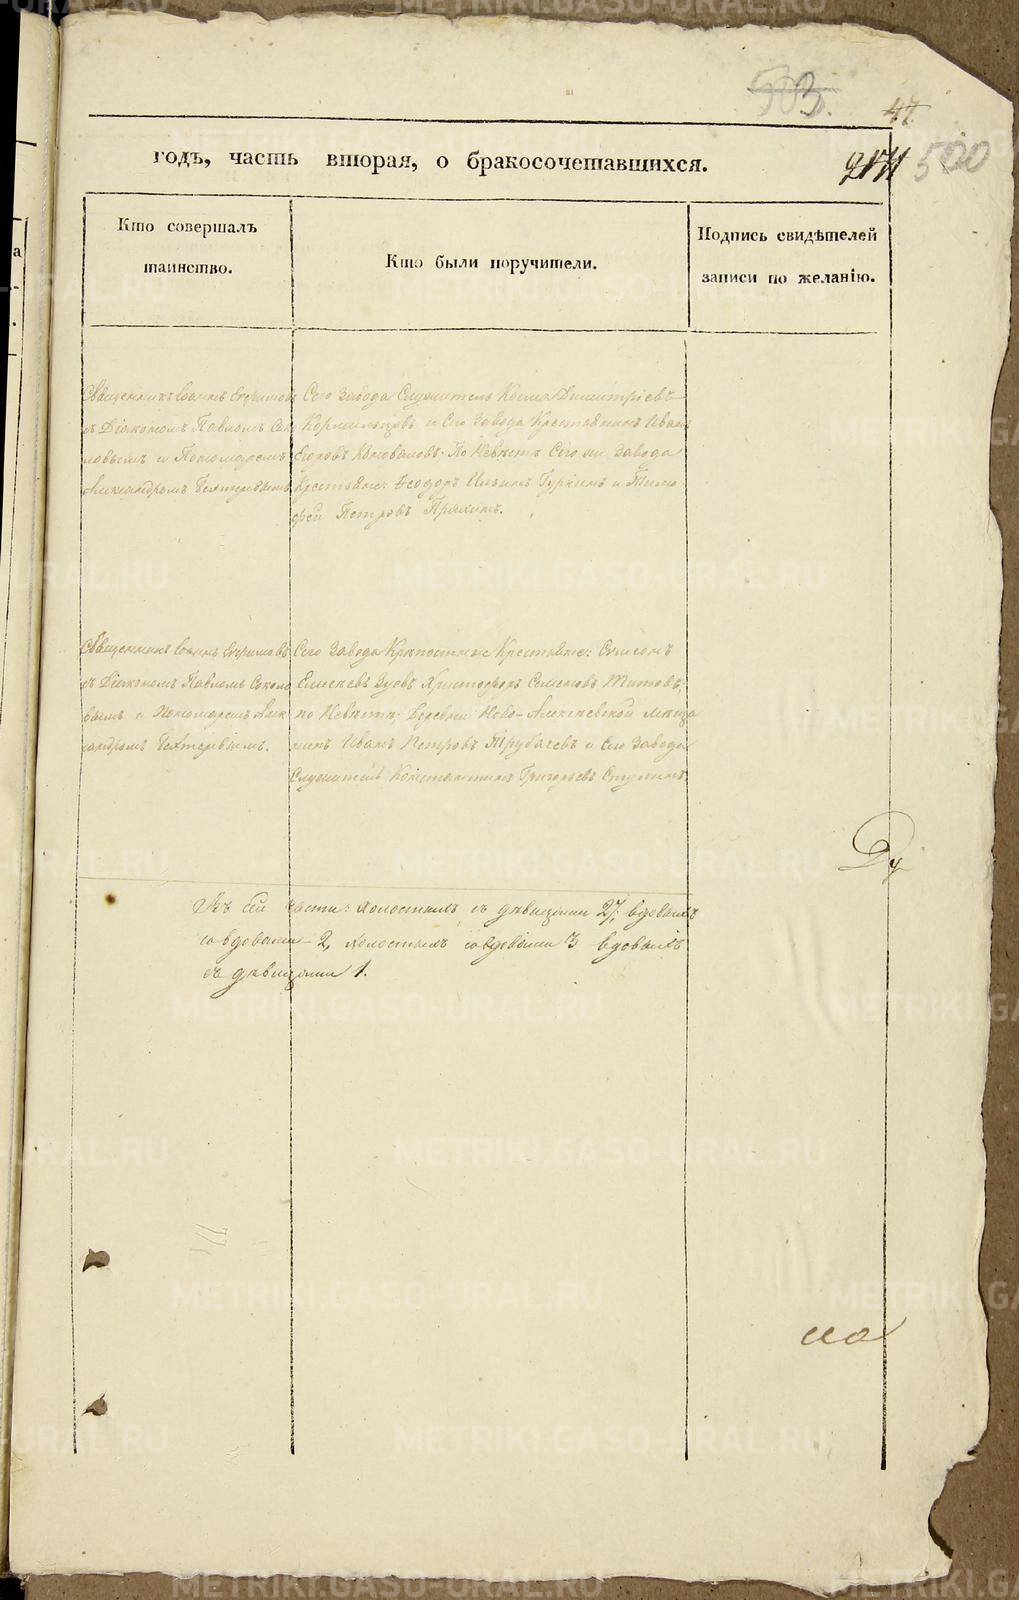 503.
47
500
годъ, часть вторая, о бракосочетавшихся.
Кто совершалъ таинство.
Кто были поручители.
Подпись свидѣтелей записи по желанію.
Священникъ Іоаннъ Ефимовъ
съ Діакономъ Павломъ Соко
ловымъ и Пономаремъ
Александромъ Бехтеревымъ
Сего завода Служитель Косма Димитріевъ
Кормильцовъ и Его завода Крестьянинъ Иванъ
Егоровъ Коноваловъ. По Невѣстѣ Сего же завода
Крестьяне: Ѳеодоръ Ильинъ Гуркинъ и Тимо
фей Петровъ
Священникъ Іоаннъ Ефимовъ
съ Діакономъ Павломъ Соколо
вымъ и Пономаремъ Алек
сандромъ Бехтеревымъ.
Сего завода Крѣпостные Крестьяне: Симеонъ
Елисѣевъ Зуевъ Христофоръ Семеновъ Титовъ;
по Невѣстѣ: Деревни Ново-Алексѣевской мѣща
нинъ Иванъ Петровъ Трубачевъ и Его завода
Служитель Константинъ Григорьевъ Ступинъ.
Ду
Въ сей части: холостыхъ съ дѣвицами 27, вдовыхъ
со вдовами - 2, холостыхъ со вдовами 3 вдовыхъ
съ дѣвицами 1.
на
METRIKI.GASO-URAL.RU